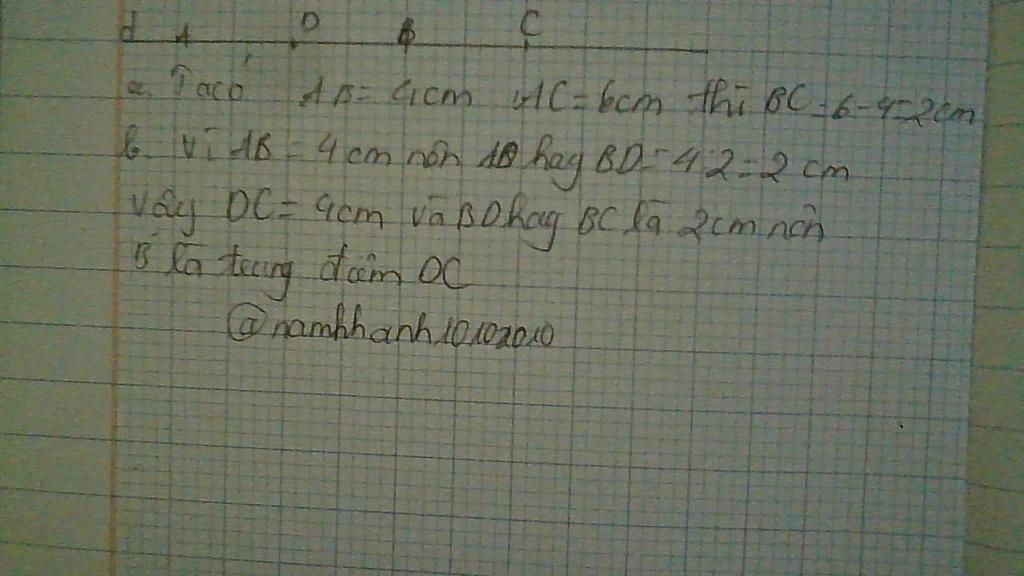 d A D B C
a. Ta có AB = 4cm AC = 6cm thì BC = 6 - 4 = 2cm
b. Vì AB = 4cm nên AD hay BD = 4:2 = 2 cm
Vậy DC = 4cm và BD hay BC là 2cm nên
B là trung điểm DC
@namhhanh10102010